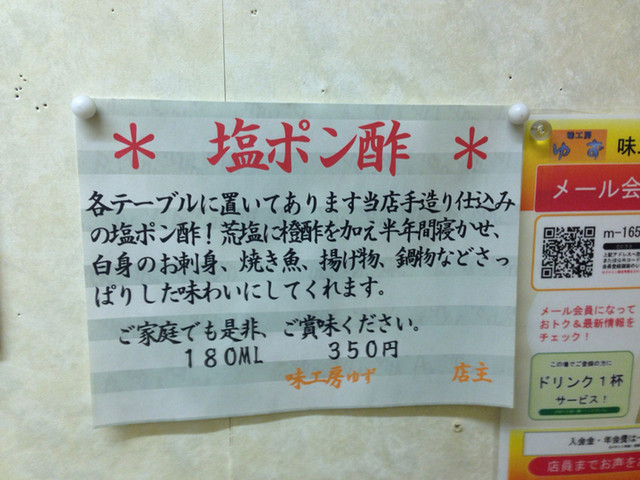 ＊ 塩ポン酢 ＊
各テーブルに置いてあります当店手造り仕込み
の塩ポン酢！荒塩に橙酢を加え半年間寝かせ、
白身のお刺身、焼き魚、揚げ物、鍋物などさっ
ぱりした味わいにしてくれます。
ご家庭でも是非、ご賞味ください。
180ML 350円
味工房ゆず 店主
味工房
ゆず
味
メール会
m-165
メール会員になって
おトク&最新情報を
チェック！
この場でご登録の方に
ドリンク1杯
サービス！
入会金・年会費は
店員までお声を